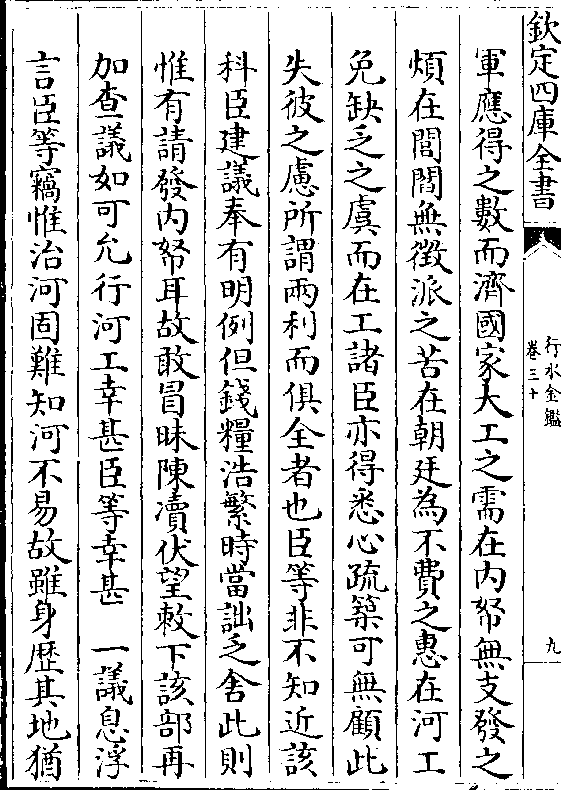 欽定四庫全書
行水金鑑
卷三十
九
軍應得之數而濟國家大工之需在內帑無支發之
煩在閭閻無徵派之苦在朝廷為不費之惠在河工
免缺乏之虞而在工諸臣亦得悉心疏築可無顧此
失彼之慮所謂兩利而俱全者也臣等非不知近該
科臣建議奉有明例但錢糧浩繁時當詘乏舍此則
惟有請發内帑耳故敢冒昧陳瀆伏望敕下該部再
加查議如可允行河工幸甚臣等幸甚　一議息浮
言臣等竊惟治河固難知河不易故雖身歷其地猶